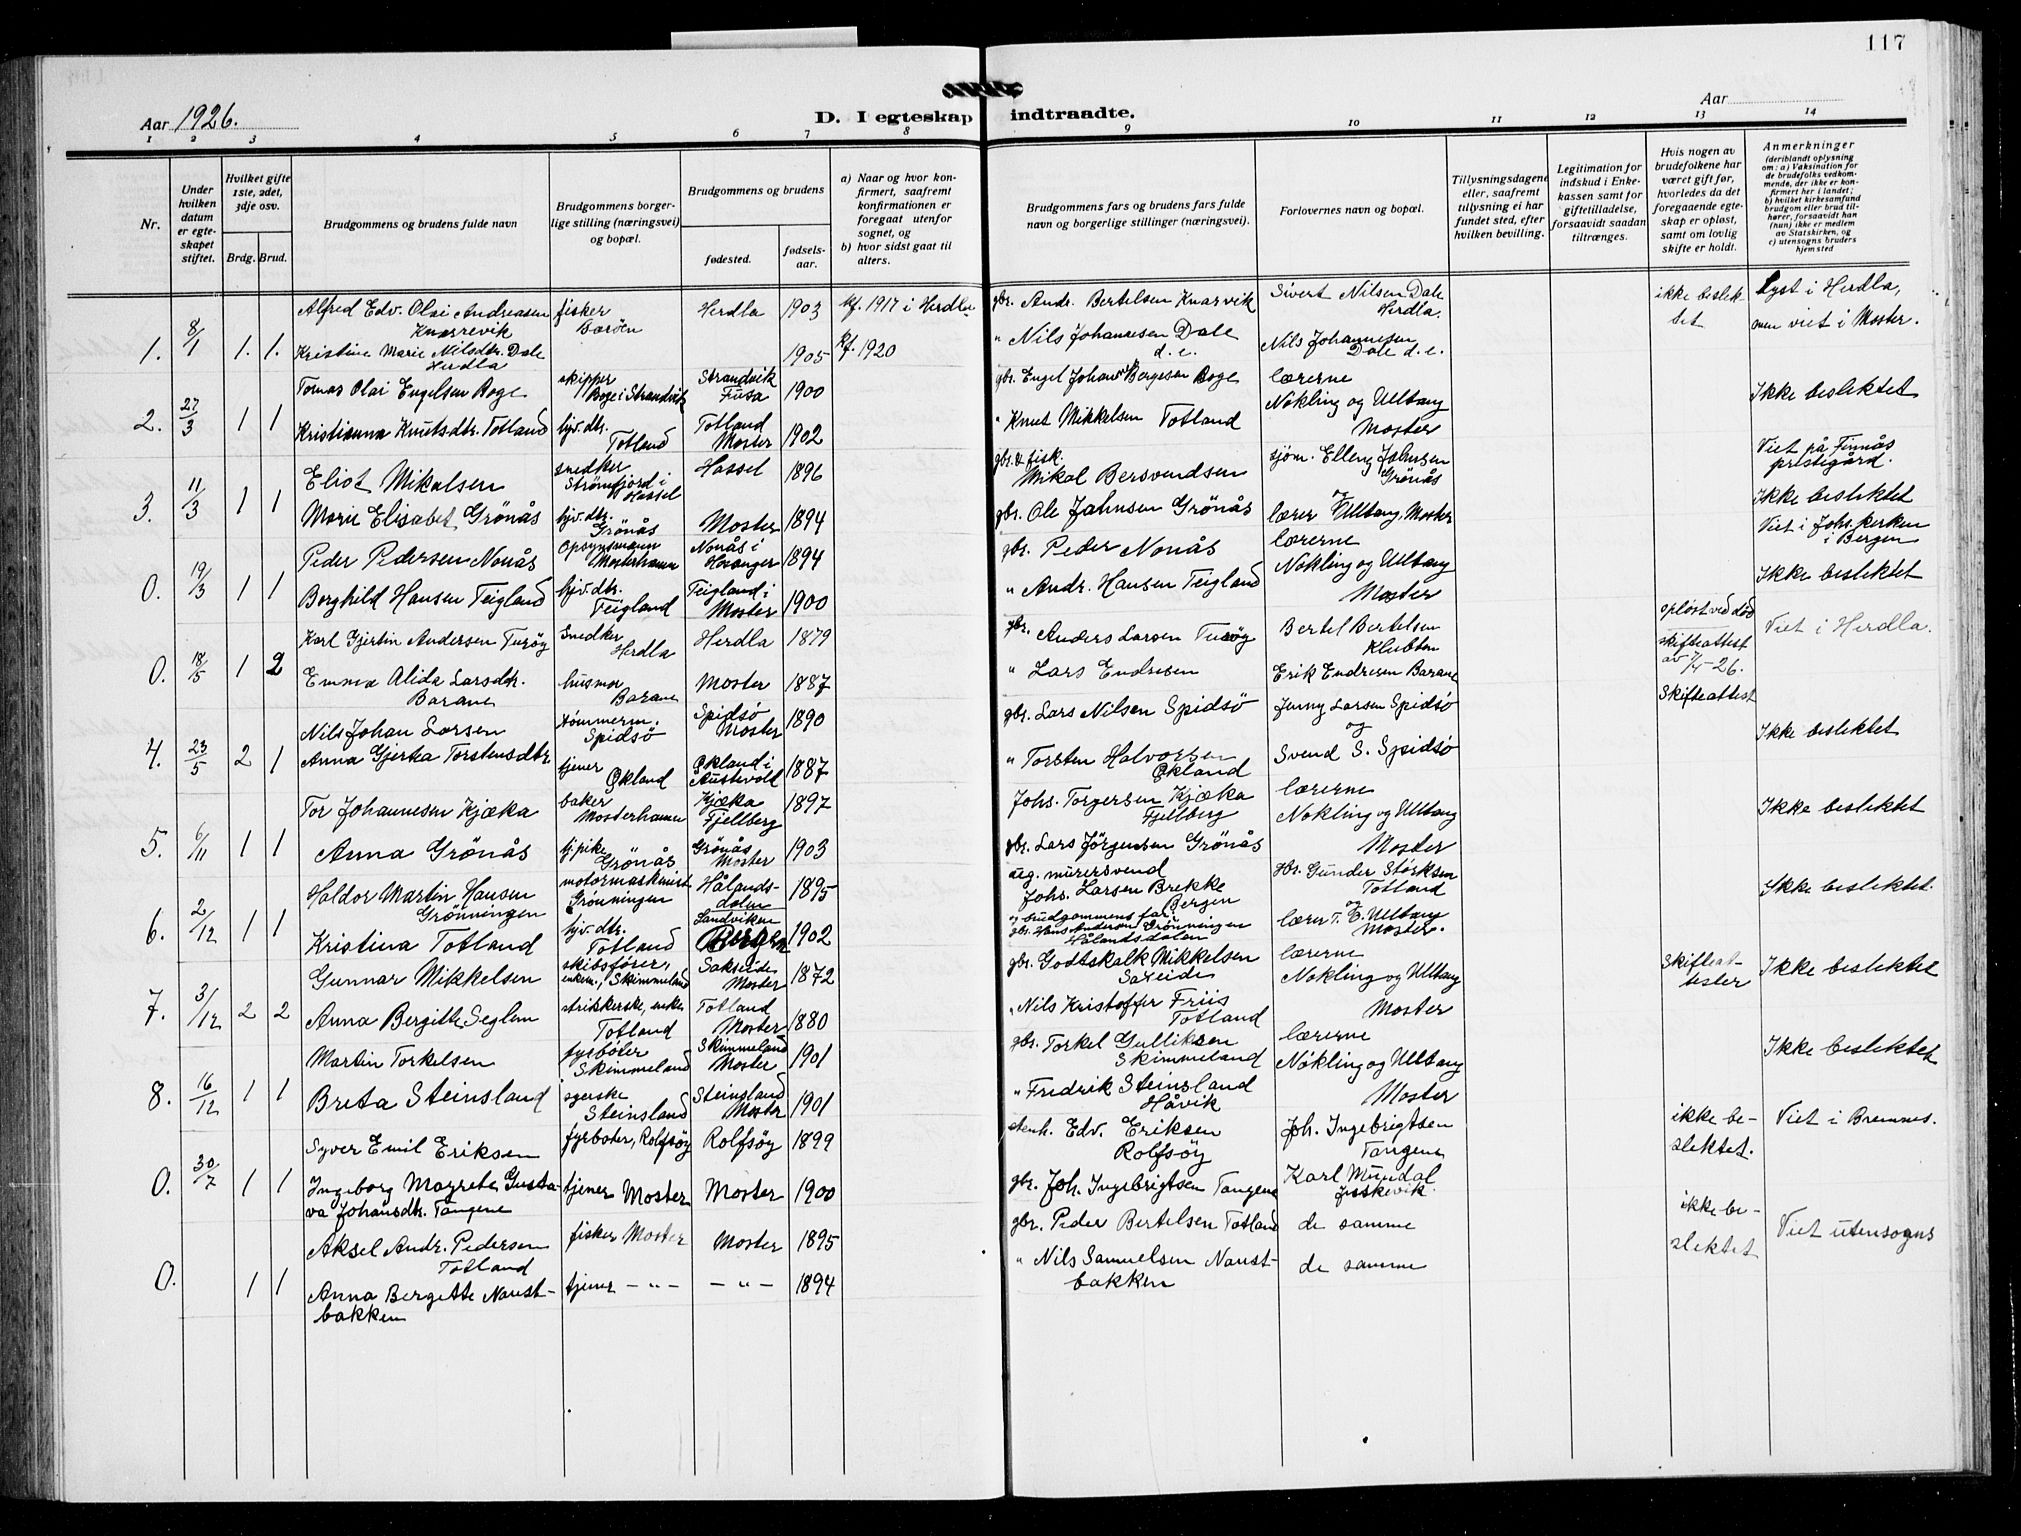 117
Aar 1926.
D. I egteskap indtraadte.
Aar
1 2 3 4 5 6 7 8 9 10 11 12 13 14
Nr.
Under hvilken datum er egteskapet stiftet.
Hvilket gifte 1ste, 2det, 3dje osv.
Brdg. Brud.
Brudgommens og brudens fulde navn
Brudgommens borgerlige stilling (næringsvei) og bopæl.
Brudgommens og brudens
fødested.
fødselsaar.
a) Naar og hvor konfirmert, saafremt konfirmationen er foregaat utenfor sognet, og
b) hvor sidst gaat til alters.
Brudgommens fars og brudens fars fulde navn og borgerlige stillinger (næringsvei).
Forlovernes navn og bopæl.
Tillysningsdagene eller, saafremt tillysning ei har fundet sted, efter hvilken bevilling.
Legitimation for indskud i Enkekassen samt for giftetilladelse, forsaavidt saadan tiltrænges.
Hvis nogen av brudefolkene har været gift før, hvorledes da det foregaaende egteskap er opløst, samt om lovlig skifte er holdt.
Anmerkninger
(deriblandt oplysning om: a) Vaksination for de brudefolks vedkommende, der ikke er konfirmert her i landet; b) hvilket kirkesamfund brudgom eller brud tilhører, forsaavidt han (hun) ikke er medlem av Statskirken, og c) utensogns bruders hjemsted
1. 8/1 1. 1.
Alfred Edv. Olai Andreasen Knarrevik fisker Herdla 1903 kf. 1917 i Herdla
gbr. Andr. Bertelsen Knarvik Sivert Nilsen Dale Herdla.
ikke beslektet
Lyst i Herdla, men viet i Moster.
Kristine Marie Nilsdtr. Dale Herdla 1905 kf. 1920
" Nils Johannesen Dale d. e. Nils Johannesen Dale d. e.
2. 27/3 1 1
Tomas Olai Engelsen Boge skipper Boge i Strandvik Strandvik Fusa 1900
gbr. Engel Johan Bergesen Boge lærerne Nökling og Ulltang Moster
Ikke beslektet
Kristianna Knutsdtr. Totland hjv. dtr. Totland Totland Moster 1902
" Knut Mikkelsen Totland
3. 11/3 1 1
Eliot Mikalsen snedker Strömfjord i Hassel Hassel 1896
gbr. & fisk. Mikal Bersvendsen sjöm. Elling Johnsen Grönås og
Viet på Finnås prestegård.
Ikke beslektet
Marie Elisabet Grönås hjv. dtr. Grönås Moster 1894
gbr. Ole Jahnsen Grönås lærer Ulltang, Moster
0. 19/3 1 1
Peder Pedersen Nonås Opsynsmann Mosterhamn Nonås i Hosanger 1894
gbr. Peder Nonås lærerne Nökling og Ulltang Moster
Viet i Johs. kirken i Bergen
Ikke beslektet
Borghild Hansen Teigland hjv. dtr. Teigland Teigland i Moster 1900
" Andr. Hansen Teigland
0. 18/5 1 2
Karl Gjertin Andersen Turöy Snedker Herdla Herdla 1879
gbr. Anders Larsen Turöy Bertel Bertelsen Klubben
opløst ved död skifteattest
Viet i Herdla.
Emma Alida Larsdtr. Barane husmor Barane Moster 1887
" Lars Endresen Erik Endresen Barane
4. 23/5 2 1
Nils Johan Larsen tömmerm. Spidsö Spidsö Moster 1890
gbr. Lars Nilsen Spidsö Jenny Larsen Spidsö og
Skifteattest
Ikke beslektet
Anna Gjerka Torstensdtr. tjener Økland Økland i Austevold 1887
" Torsten Halvorsen Økland Svend S. Spidsö
5. 6/11 1 1
Tor Johannesen Kjæka baker Mosterhamn Kjæka Fjellberg 1897
Johs. Torgersen Kjæka Fjellberg lærerne Nökling og Ulltang Moster
Ikke beslektet
Anna Grönås tj pike Grönås Grönås Moster 1903
gbr. Lars Jörgensen Grönås
6. 2/12 1 1
Haldor Martin Hansen Grönningen motormaskinist Grönningen Hålandsdalen 1895
avg. mürersvend Johs. Larsen Brekke Bergen gbr. Gunder Störksen Totland og
Ikke beslektet.
Kristina Totland hjv. dtr. Totland Sandviken Bergen 1902
og brudgommens far: gbr. Hans Anderson Grönningen Hålandsdalen lærer T. E. Ulltang Moster.
7. 3/12 2 2
Gunnar Mikkelsen skibsförer, enkem., Skimmeland Sakseide Moster 1872
gbr. Godtskalk Mikkelsen Saxeide lærerne Nökling og Ulltang Moster
Skifteattester
Ikke beslektet
Anna Bergitte Seglem strikkerske, enke Totland Totland Moster 1880
" Nils Kristoffer Friis Totland
8. 16/12 1 1
Martin Torkelsen fyrböter Skimmeland Skimmeland Moster 1901
gbr. Torkel Gulliksen Skimmeland lærerne Nökling og Ulltang Moster
Ikke beslektet
Breta Steinsland syerske Steinsland Steinsland Moster 1901
" Fredrik Steinsland Håvik
0. 30/7 1 1
Syver Emil Eriksen fyrböter, Rolfsöy Rolfsöy 1899
stenh. Edv. Eriksen Rolfsöy Joh. Ingebrigtsen Tangene
ikke beslektet.
Viet i Bremnes.
Ingeborg Magrete Gustava Johansdtr. Tangene tjener Moster Moster 1900
gbr. Joh. Ingebrigtsen Tangene Karl Mündal
0. 1 1
Aksel Andr. Pedersen Totland fisker Moster Moster 1895
gbr. Peder Bertelsen Totland de samme
ikke beslektet
Viet utensogns
Anna Bergette Naustbakken tjener — " — — " — 1894
" Nils Samuelsen Naustbakken de samme